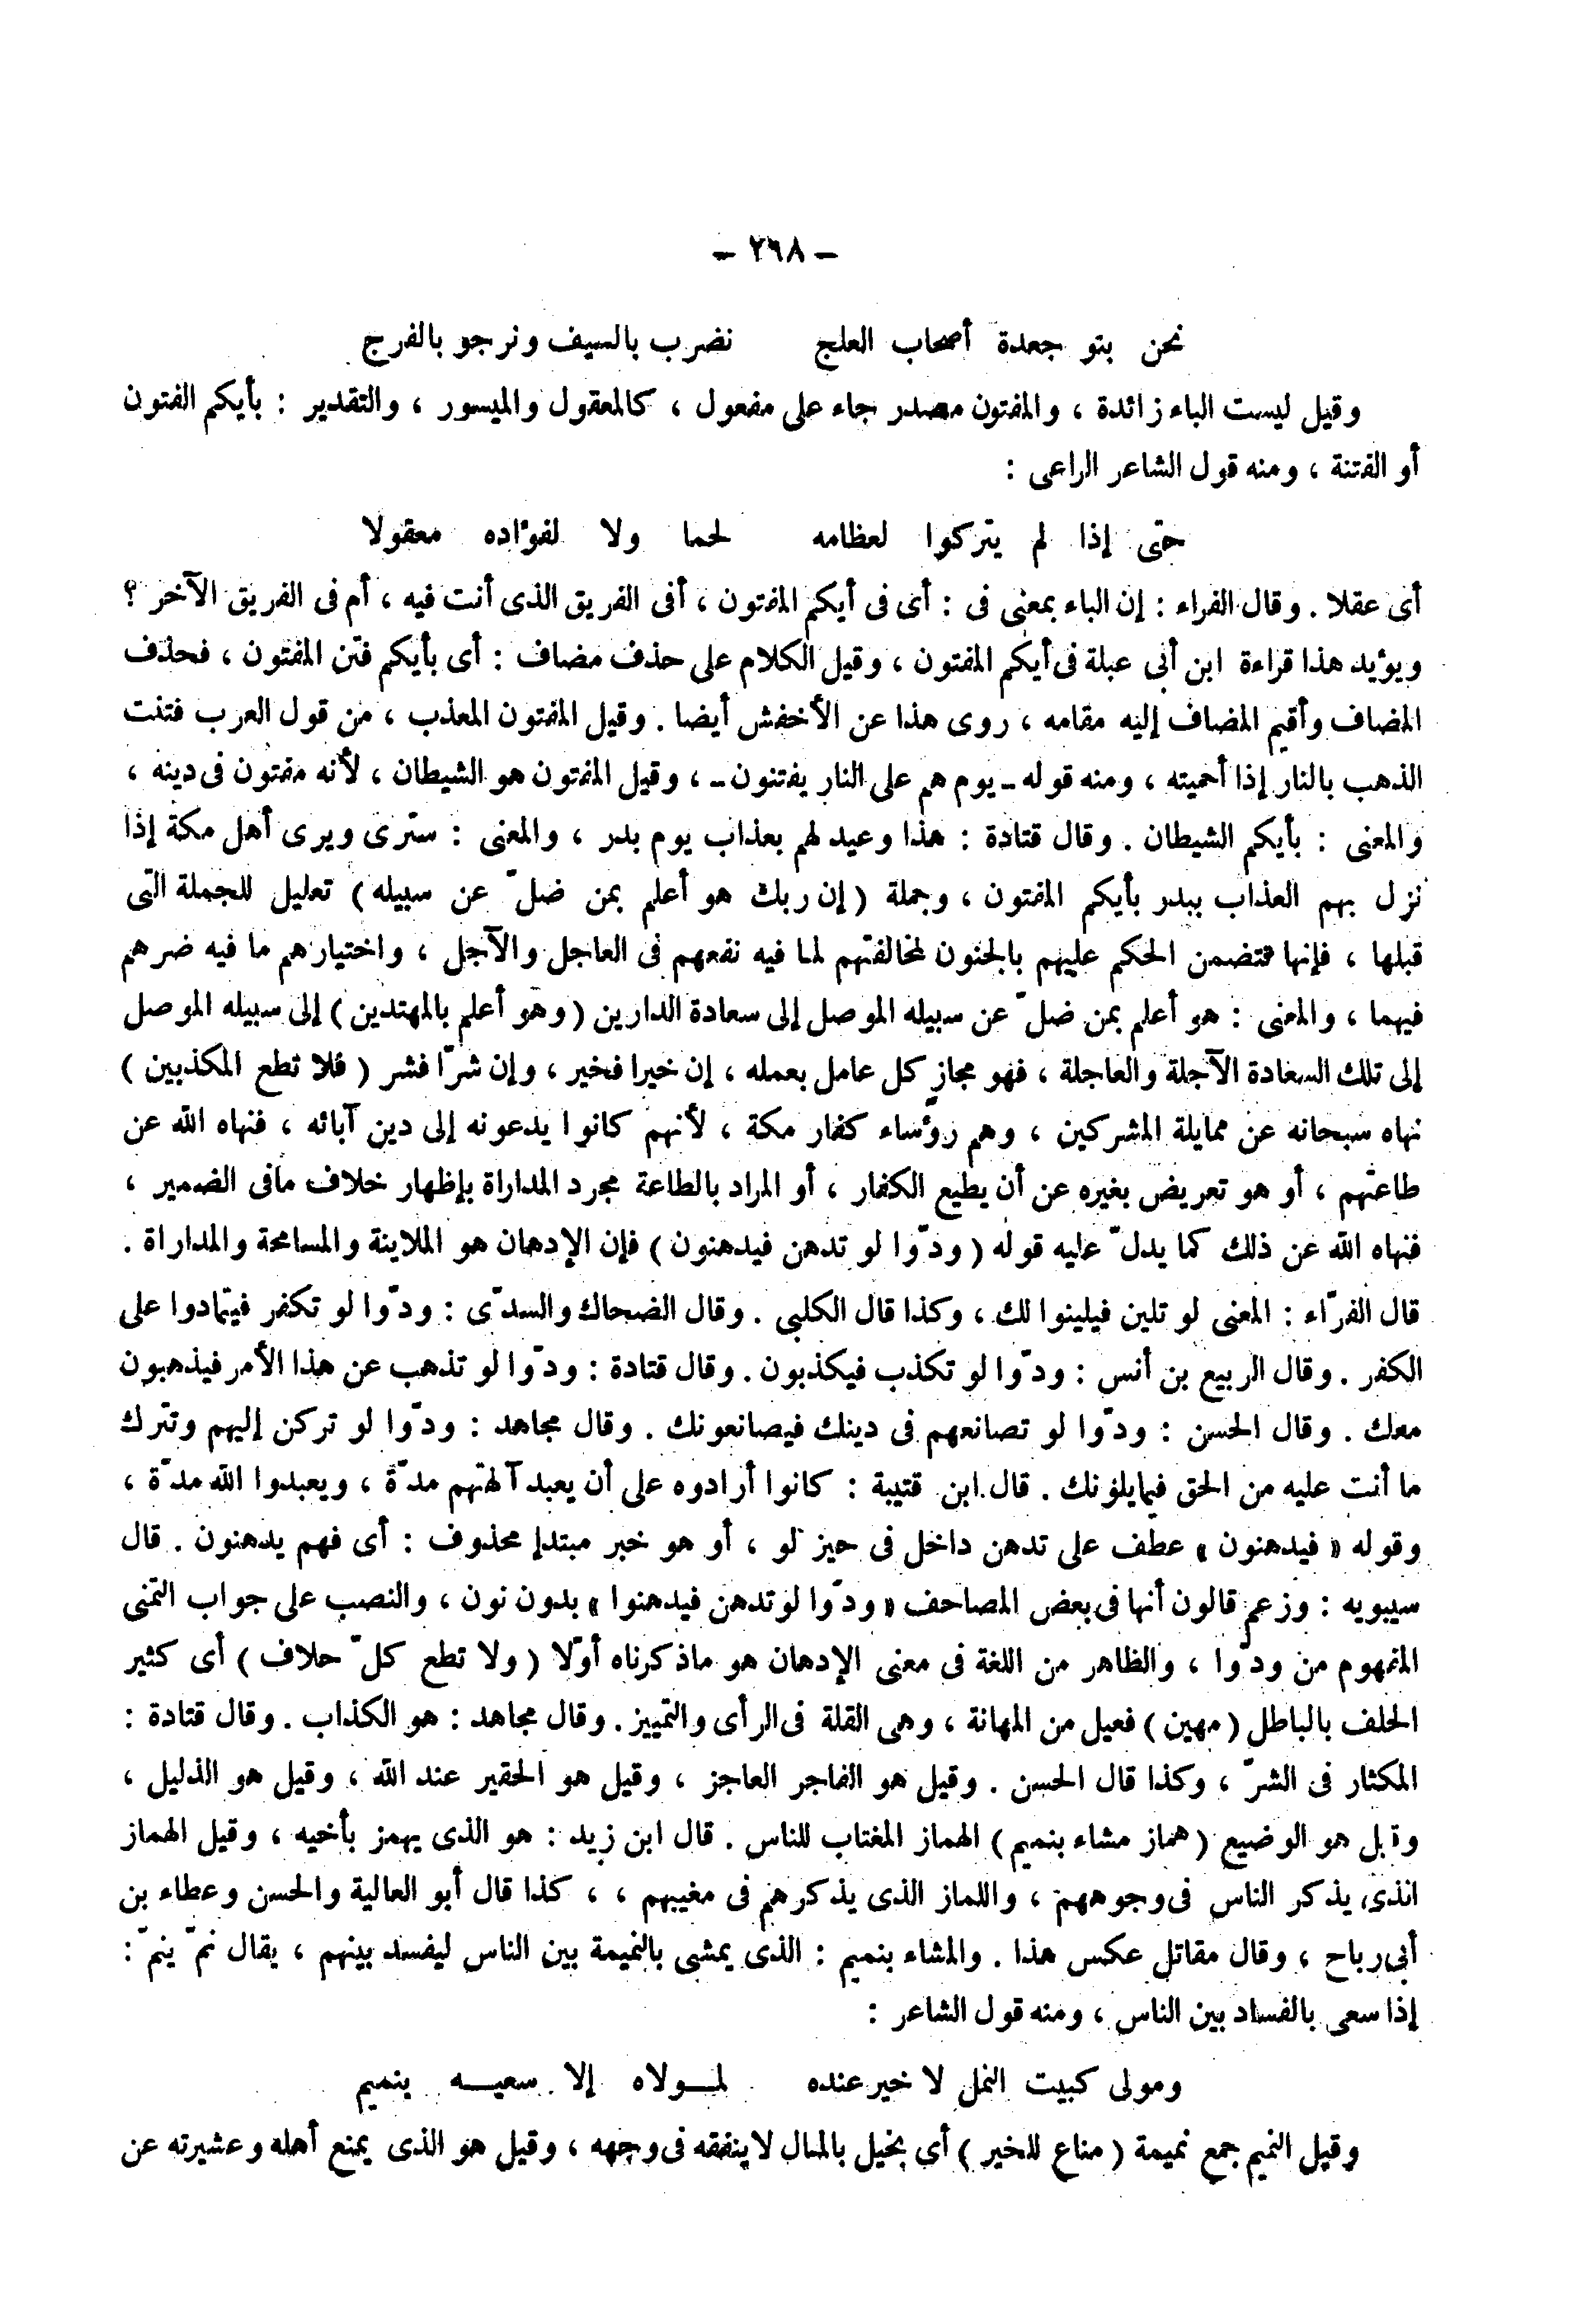 – ٢٦٨ –
نحن بنو جعدة أصحاب العلج نضرب بالسيف ونرجو بالفرج
وقيل ليست الباء زائدة ، والمفتون مصدر جاء على مفعول ، كالمعقول والميسور ، والتقدير : بأيكم الفتون
أو الفتنة ، ومنه قول الشاعر الراعى :
حتى إذا لم يتركوا لعظامه لحما ولا لفؤاده معقولا
أى عقلا . وقال الفراء : إن الباء بمعنى فى : أى فى أيكم المفتون ، أفى الفريق الذى أنت فيه ، أم فى الفريق الآخر ؟
ويؤيد هذا قراءة ابن أبى عبلة فى أيكم المفتون ، وقيل الكلام على حذف مضاف : أى بأيكم فتن المفتون ، فحذف
المضاف وأقيم المضاف إليه مقامه ، روى هذا عن الأخفش أيضا . وقيل المفتون المعذب ، من قول العرب فتنت
الذهب بالنار إذا أحميته ، ومنه قوله ـ يوم هم على النار يفتنون ـ ، وقيل المفتون هو الشيطان ، لأنه مفتون فى دينه ،
والمعنى : بأيكم الشيطان . وقال قتادة : هذا وعيد لهم بعذاب يوم بدر ، والمعنى : سترى ويرى أهل مكة إذا
نزل بهم العذاب ببدر بأيكم المفتون ، وجملة ( إن ربك هو أعلم بمن ضلّ عن سبيله ) تعليل للجملة التى
قبلها ، فإنها تتضمن الحكم عليهم بالجنون لمخالفتهم لما فيه نفعهم فى العاجل والآجل ، واختيارهم ما فيه ضرهم
فيهما ، والمعنى : هو أعلم بمن ضلّ عن سبيله الموصل إلى سعادة الدارين ( وهو أعلم بالمهتدين ) إلى سبيله الموصل
إلى تلك السعادة الآجلة والعاجلة ، فهو مجاز كل عامل بعمله ، إن خيرا فخير ، وإن شرّا فشر ( فلا تطع المكذبين )
نهاه سبحانه عن ممايلة المشركين ، وهم رؤساء كفار مكة ، لأنهم كانوا يدعونه إلى دين آبائه ، فنهاه الله عن
طاعتهم ، أو هو تعريض بغيره عن أن يطيع الكفار ، أو المراد بالطاعة مجرد المداراة بإظهار خلاف مافى الضمير ،
فنهاه الله عن ذلك كما يدلّ عليه قوله ( ودّوا لو تدهن فيدهنون ) فإن الإدهان هو الملاينة والمسامحة والمداراة .
قال الفرّاء : المعنى لو تلين فيلينوا لك ، وكذا قال الكلبى . وقال الضحاك والسدّى : ودّوا لو تكفر فيتمادوا على
الكفر . وقال الربيع بن أنس : ودّوا لو تكذب فيكذبون . وقال قتادة : ودّوا لو تذهب عن هذا الأمر فيذهبون
معك . وقال الحسن : ودّوا لو تصانعهم فى دينك فيصانعونك . وقال مجاهد : ودّوا لو تركن إليهم وتترك
ما أنت عليه من الحق فيمايلونك . قال ابن قتيبة : كانوا أرادوه على أن يعبد آلهتهم مدّة ، ويعبدوا الله مدّة ،
وقوله « فيدهنون » عطف على تدهن داخل فى حيز لو ، أو هو خبر مبتدإ محذوف : أى فهم يدهنون . قال
سيبويه : وزعم قالون أنها فى بعض المصاحف « ودّوا لو تدهن فيدهنوا » بدون نون ، والنصب على جواب التمنى
المفهوم من ودّوا ، والظاهر من اللغة فى معنى الإدهان هو ماذكرناه أوّلا ( ولا تطع كلّ حلاف ) أى كثير
الحلف بالباطل ( مهين ) فعيل من المهانة ، وهى القلة فى الرأى والتمييز . وقال مجاهد : هو الكذاب . وقال قتادة :
المكثار فى الشرّ ، وكذا قال الحسن . وقيل هو الفاجر العاجز ، وقيل هو الحقير عند الله ، وقيل هو الذليل ،
وقيل هو الوضيع ( هماز مشاء بنميم ) الهماز المغتاب للناس . قال ابن زيد : هو الذى يهمز بأخيه ، وقيل الهماز
الذى يذكر الناس فى وجوههم ، واللماز الذى يذكرهم فى مغيبهم ، ، كذا قال أبو العالية والحسن وعطاء بن
أبى رباح ، وقال مقاتل عكس هذا . والمشاء بنميم : الذى يمشى بالنميمة بين الناس ليفسد بينهم ، يقال نمّ ينمّ :
إذا سعى بالفساد بين الناس ، ومنه قول الشاعر :
ومولى كبيت النمل لا خير عنده لمـولاه إلا سعيـه ينميم
وقيل النميم جمع نميمة ( مناع للخير ) أى بخيل بالمال لا ينفقه فى وجهه ، وقيل هو الذى يمنع أهله وعشيرته عن